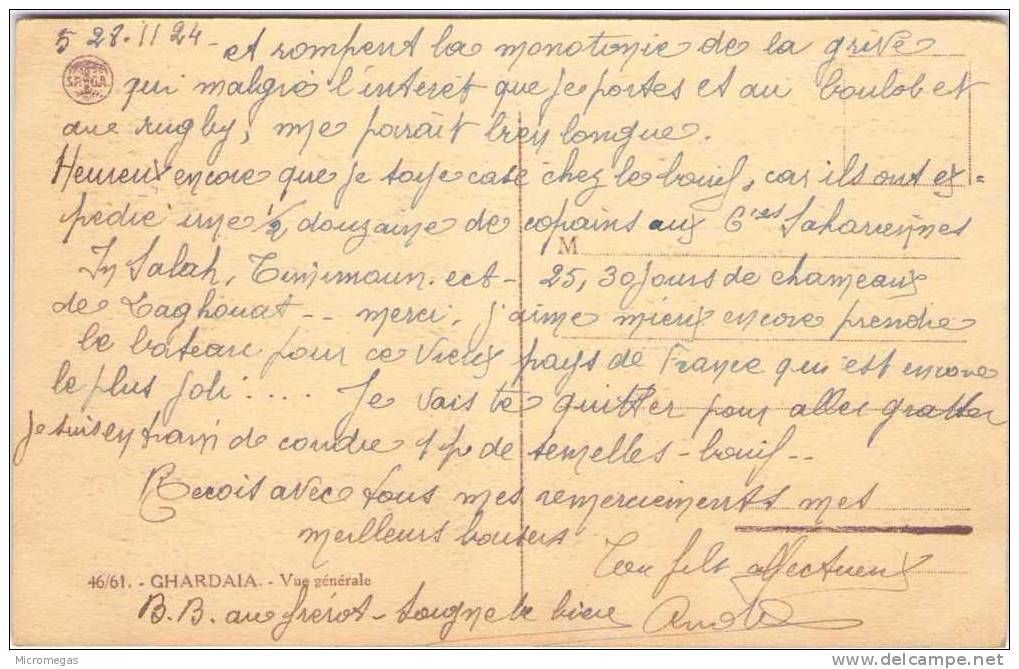 5 28.11 24 - et rompent la monotonie de la grive
S.P.G.A.
qui malgré l'interêt que je portes et au boulot et
au rugby, me parait bien longue.
Heureux encore que je soye casé chez le bouif, car ils ont ex=
pedié une 1/2 douzaine de copains aux Cies Sahariennes
M
In Salah, Timimoun. ect - 25, 30 jours de chameaux
de Laghouat -- merci, j'aime mieux encore prendre
le bateau pour ce vieux pays de France qui est encore
le plus joli ..... Je vais te quitter pour aller gratter
je suis en train de coudre 1 p de semelles - bouif --
Recois avec tous mes remerciements mes
meilleurs baisers
Ton fils affectueux
46/61. - GHARDAIA. - Vue générale
B.B. au frérot - soigne le bien André
Micromegas
delcampe.net